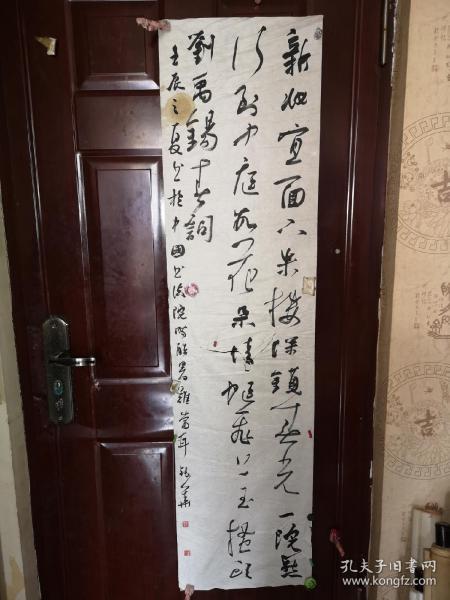 新妝宜面下朱樓深鎖春光一院愁
行到中庭數花朵蜻蜓飛上玉搔頭
劉禹錫春詞
壬辰之夏書於中國書法院時酷暑難當耳
吉
吉
孔夫子旧书网
www.kongfz.com